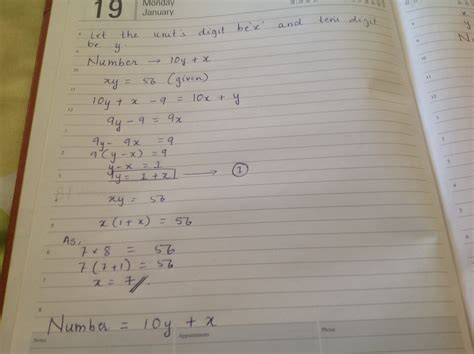 19 Monday
January
Let the units digit be 'x' and tens digit
be y.
Number → 10y + x
xy = 56 (given)
10y + x - 9 = 10x + y
9y - 9 = 9x
9y - 9x = 9
9(y - x) = 9
y - x = 1
y = 1 + x → ①
xy = 56
x(1 + x) = 56
As,
7 × 8 = 56
7(7+1) = 56
x = 7
Number = 10y + x
Notes Appointments Phone